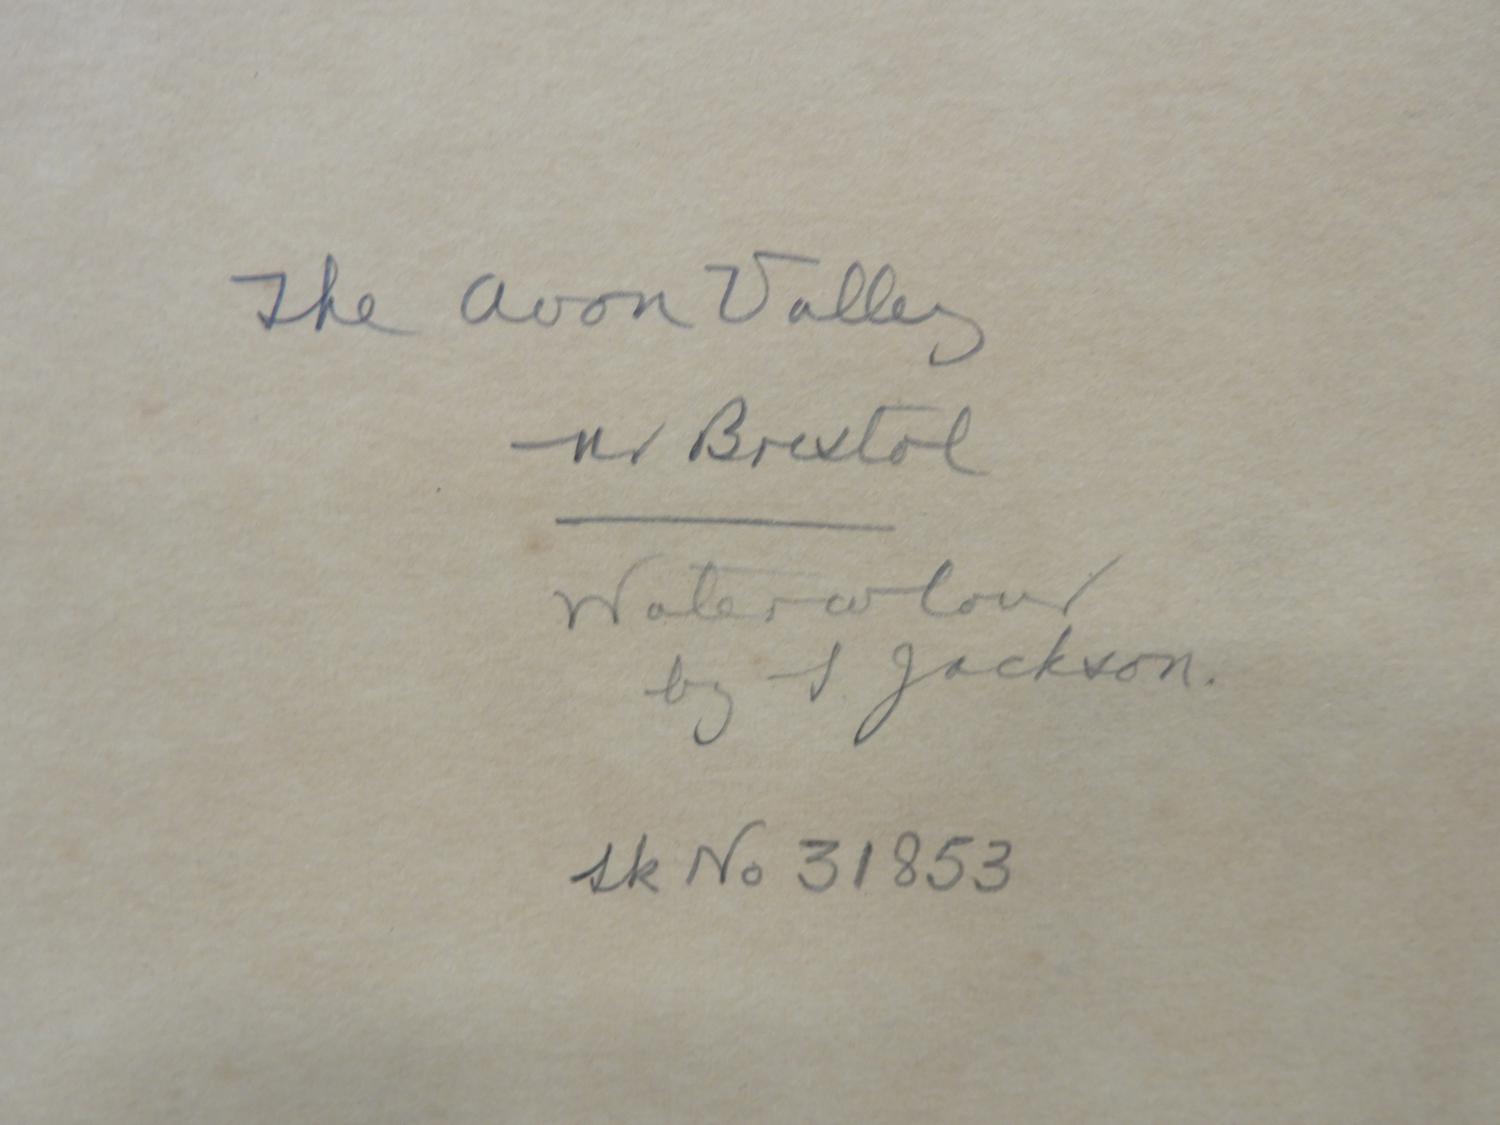 The Avon Valley
nr Bristol
Watercolour
by S. Jackson.
sk No 31853